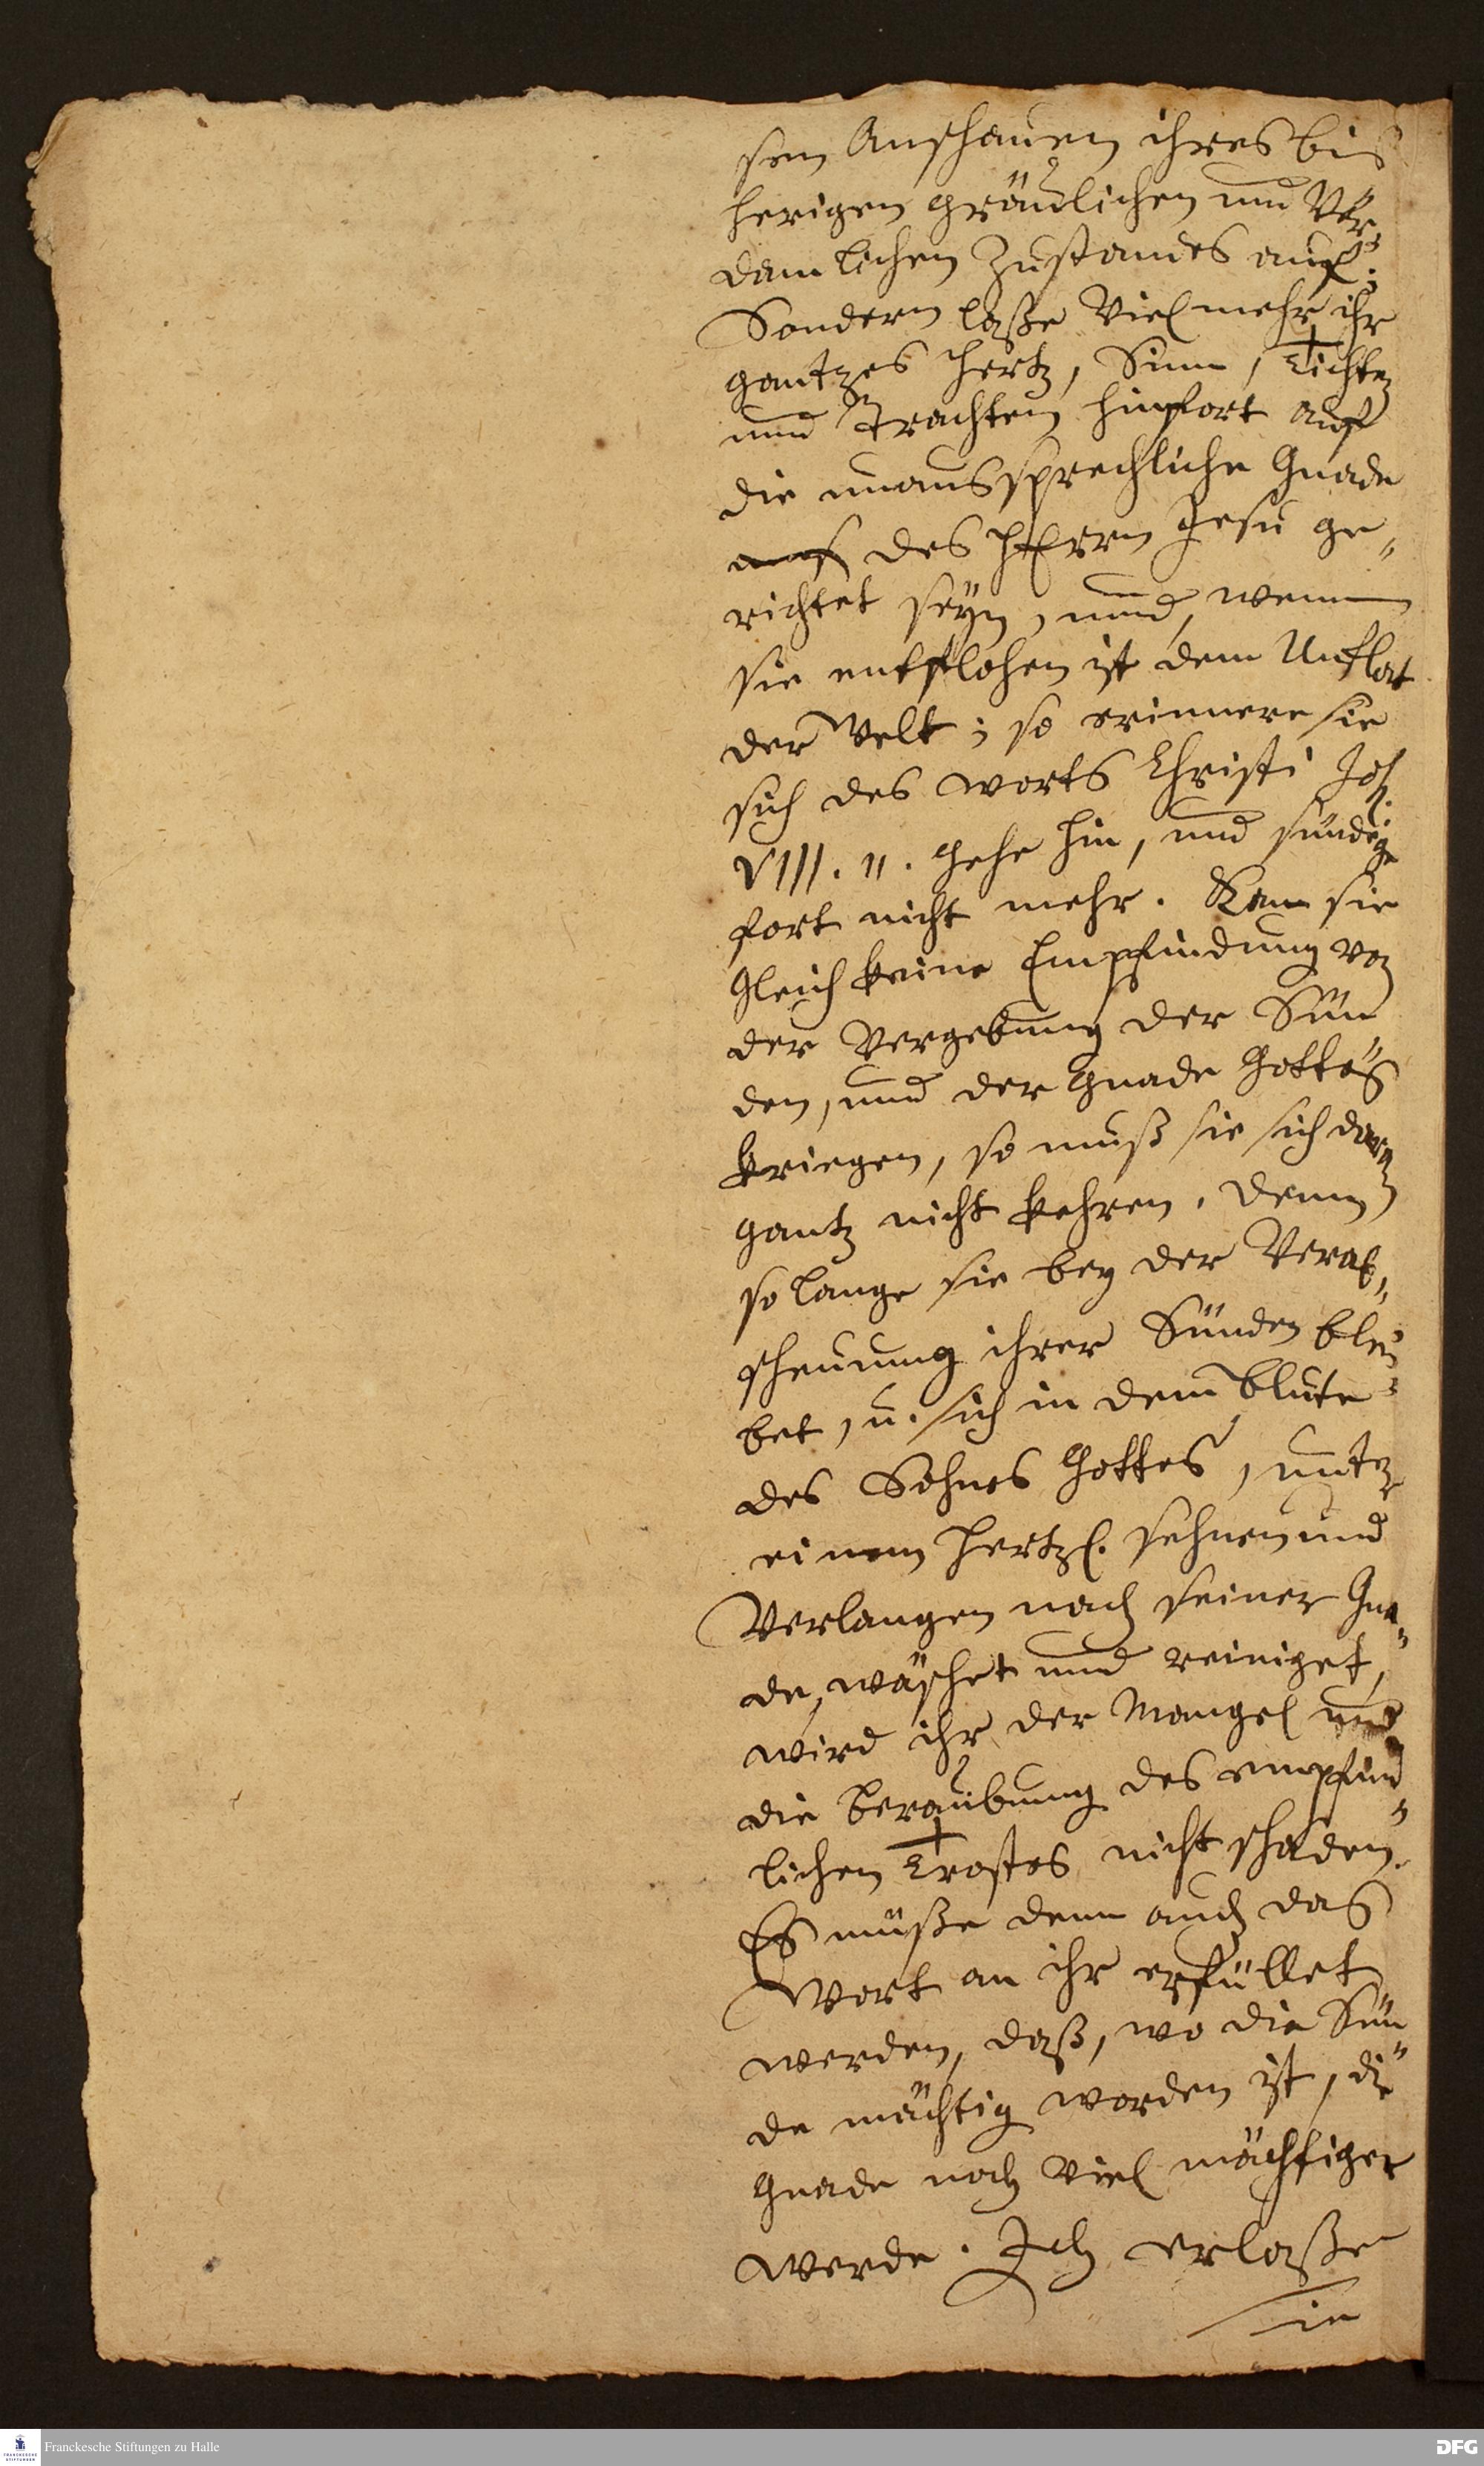 sen Anschauen ihres bis
herigen gräulichen und Ver,
damlichen Zustandes auf;
Sondern laße Vielmehr ihr
gantzes Hertz, Sinn, Tichten
und Trachten hinfort auf
die unaussprechliche Gnade
auf des HErrn Jesu ge„
richtet seyn, und, wenn
sie entflohen ist dem Unflat
der Welt; so erinnere sie
sich des Worts Christi Joh.
VIII. 11. Gehe hin, und sündige
fort nicht mehr. Kan sie
gleich keine Empfindung von
der Vergebung der Sün„
den, und der Gnade Gottes
kriegen, so muß sie sich daran
gantz nicht kehren. Denn
so lange sie bey der Verab„
scheuung ihrer Sünden blei„
bet, u. sich in dem Blute
des Sohnes Gottes, unter
einem Hertzl. sehnen und
Verlangen nach seiner Gna„
de, wäschet und reiniget,
wird ihr der Mangel und
die Beraubung des empfind„
lichen Trostes nicht schaden.
Es müße denn auch das
Wort an ihr erfüllet
werden, daß, wo die Sün„
de mächtig worden ist, die
Gnade noch Viel mächtiger
werde. Ich erlaße
sie
Franckesche Stiftungen zu Halle
DFG